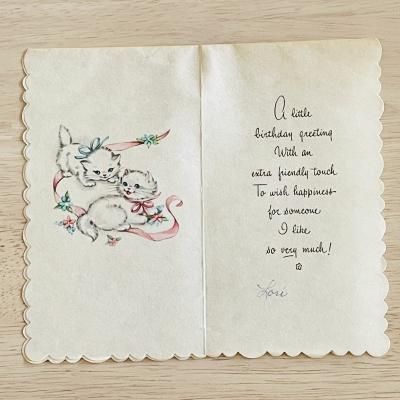 A little
birthday greeting
With an
extra friendly touch
To wish happiness
for someone
I like
so very much!
Lori